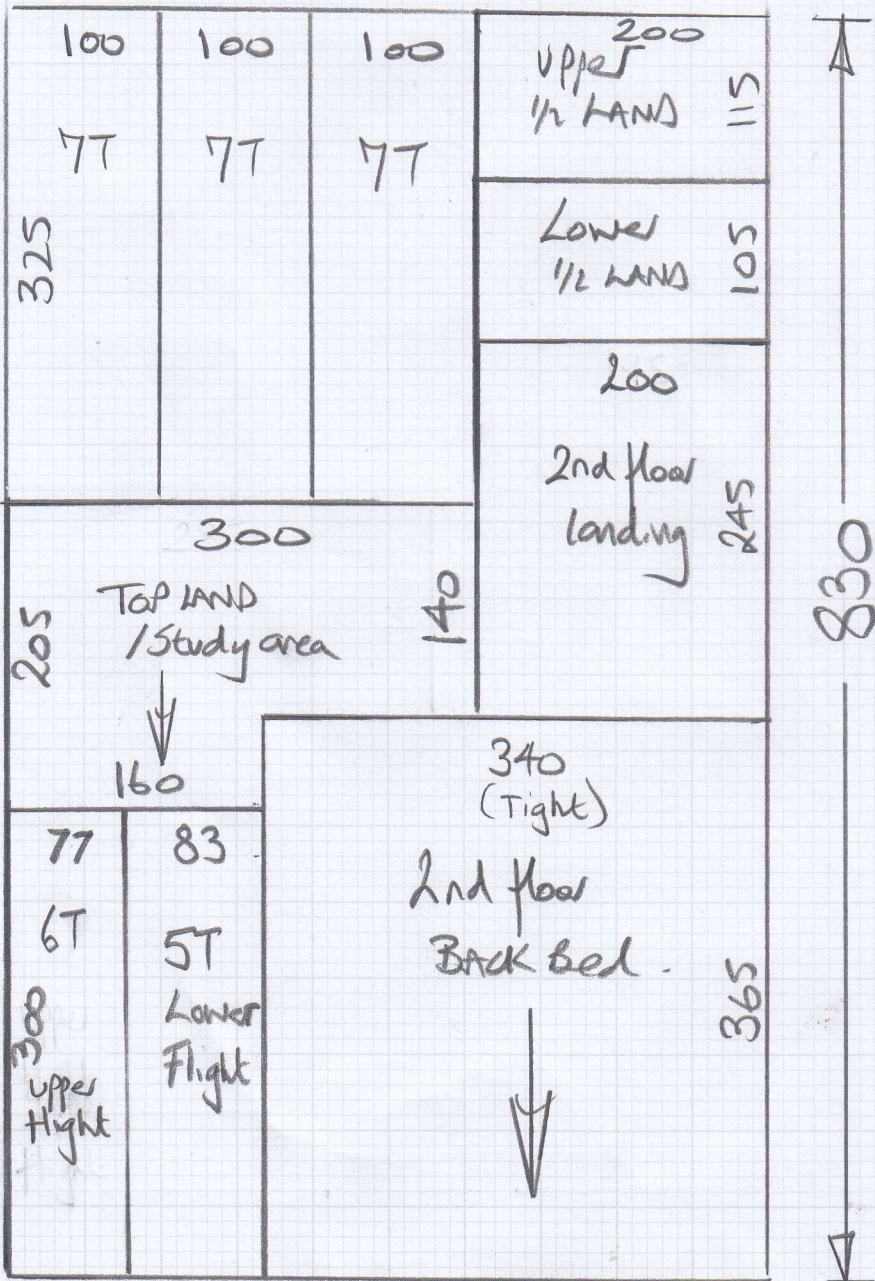 100
7T
325
100
7T
100
7T
200
Upper
1/2 LAND
115
Lower
1/2 LAND
105
200
2nd floor
landing
245
830
300
TOP LAND
/Study area
205
140
160
77
6T
300
upper
flight
83
5T
Lower
Flight
340
(Tight)
2nd floor
BACK Bed.
365